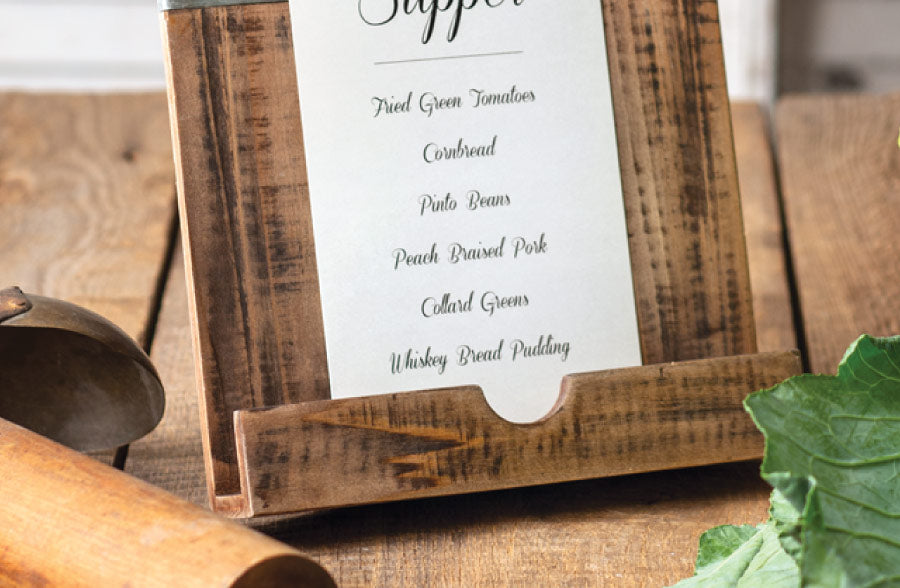 Supper
Fried Green Tomatoes
Cornbread
Pinto Beans
Peach Braised Pork
Collard Greens
Whiskey Bread Pudding